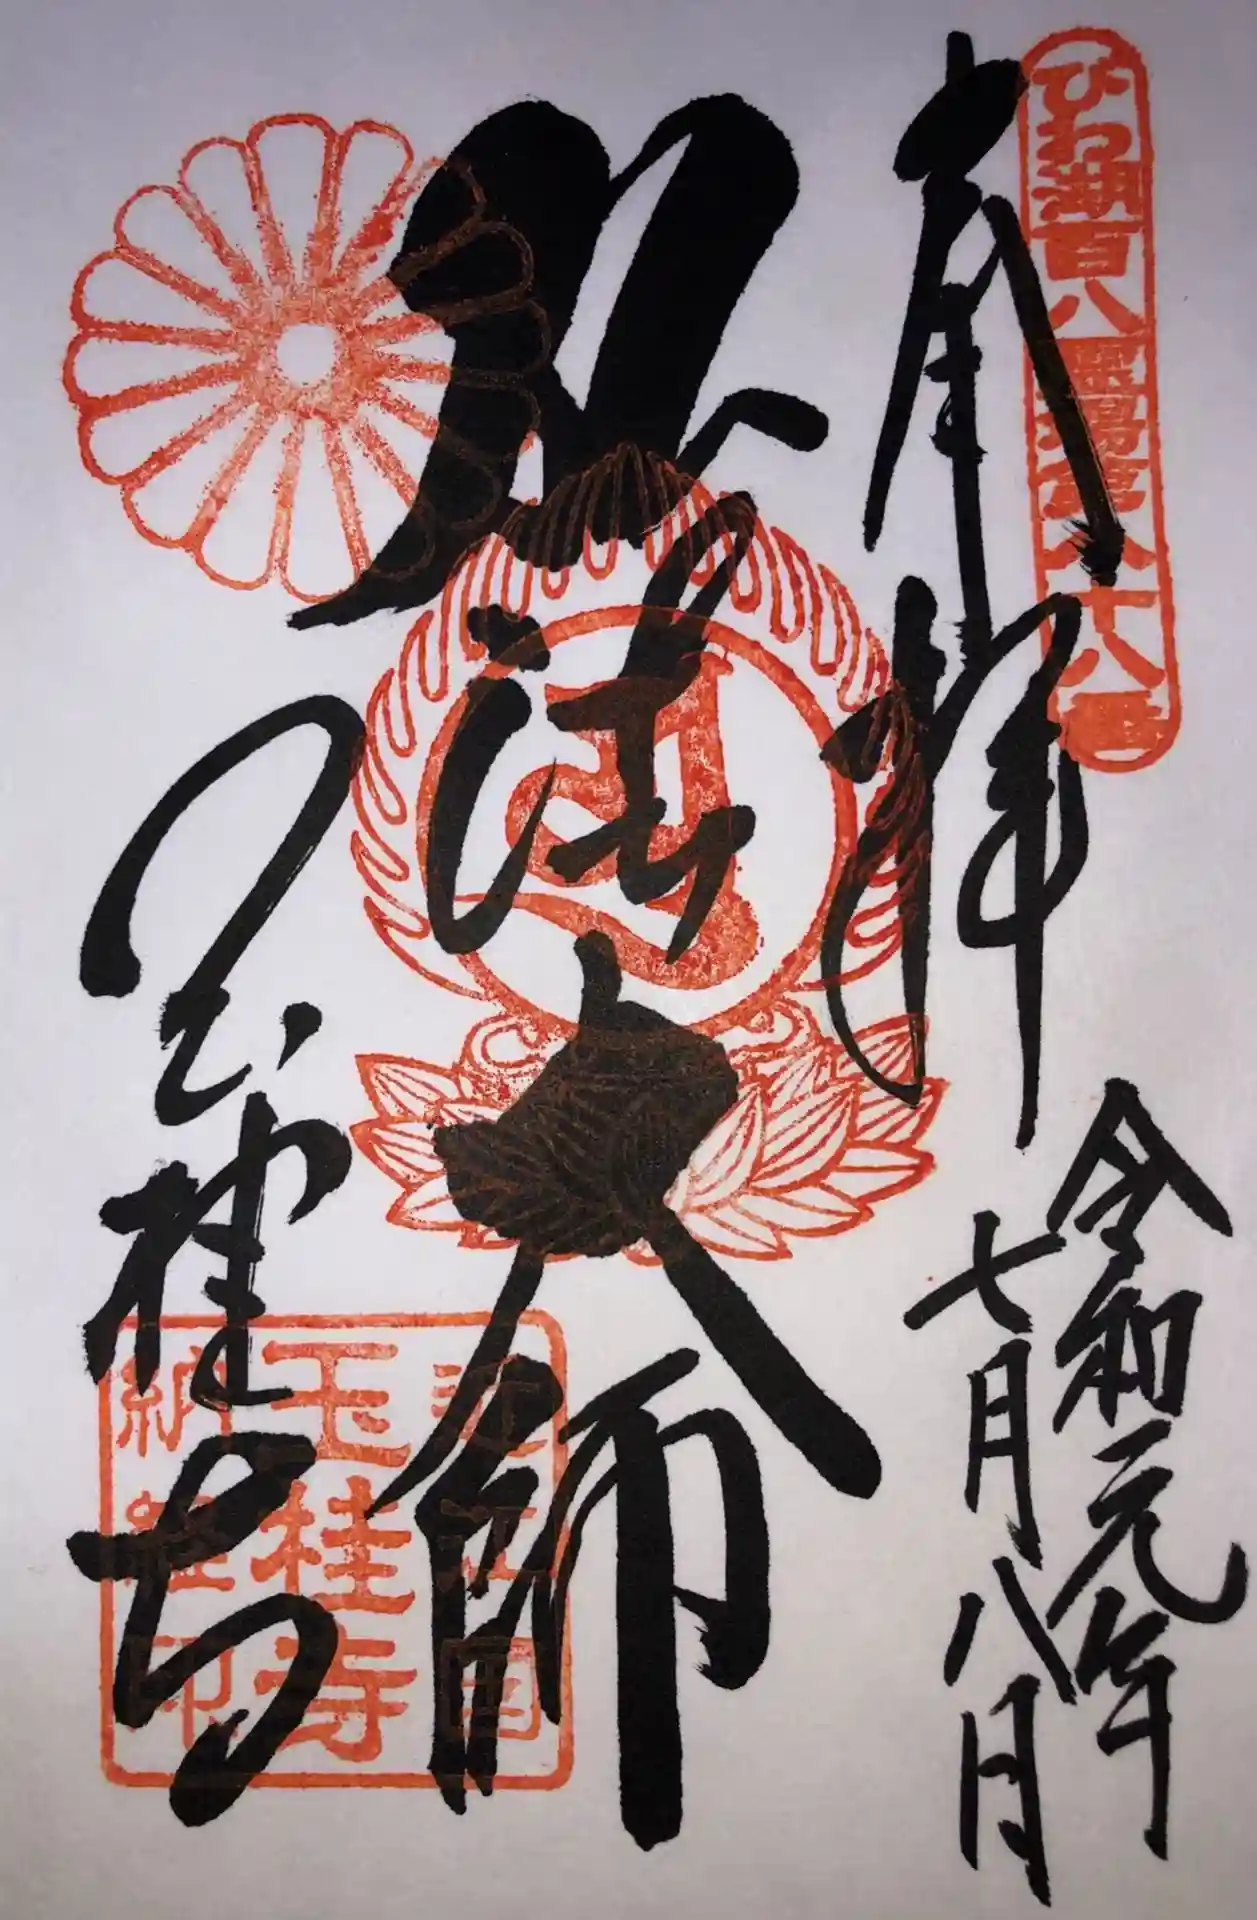 びわ湖百八霊場第八十八番
奉拝
令和元年
七月八日
弘法大師
玉桂寺
近江国
玉桂寺
納経印